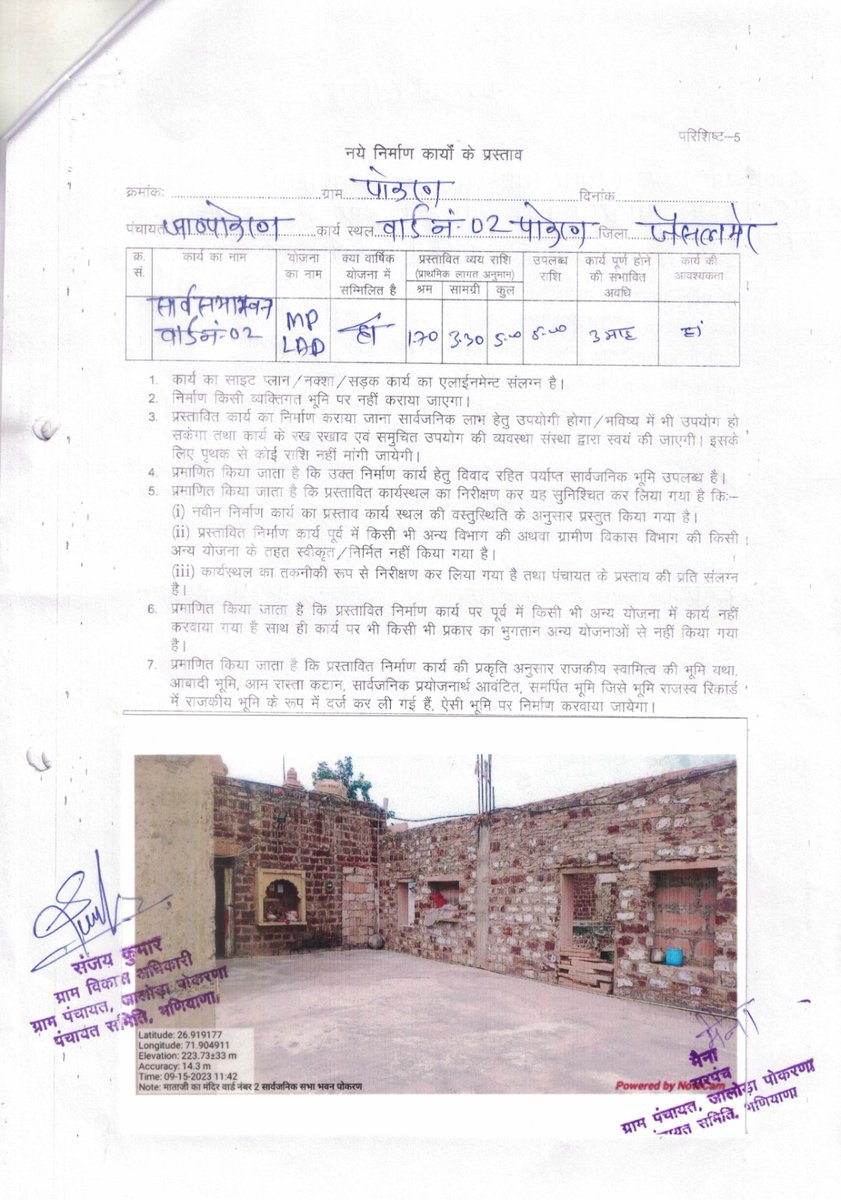 परिशिष्ट–5
नये निर्माण कार्यों के प्रस्ताव
क्रमांक: ग्राम पोकरण दिनांक
पंचायत कार्य स्थल वार्ड नं:- 02 पोकरण जिला जैसलमेर
क्र. सं. कार्य का नाम योजना का नाम क्या वार्षिक योजना में सम्मिलित है प्रस्तावित व्यय राशि (प्राथमिक लागत अनुमान) श्रम सामग्री कुल उपलब्ध राशि कार्य पूर्ण होने की संभावित अवधि कार्य की आवश्यकता
सार्व सभाभवन वार्ड नं:- 02 MP LAD हां 1.70 3.30 5.00 5.00 3 माह हां
1. कार्य का साइट प्लान/नक्शा/सड़क कार्य का एलाईनमेन्ट संलग्न है।
2. निर्माण किसी व्यक्तिगत भूमि पर नहीं कराया जाएगा।
3. प्रस्तावित कार्य का निर्माण कराया जाना सार्वजनिक लाभ हेतु उपयोगी होगा/भविष्य में भी उपयोग हो
सकेगा तथा कार्य के रख रखाव एवं समुचित उपयोग की व्यवस्था संस्था द्वारा स्वयं की जाएगी। इसके
लिए पृथक से कोई राशि नहीं मांगी जायेगी।
4. प्रमाणित किया जाता है कि उक्त निर्माण कार्य हेतु विवाद रहित पर्याप्त सार्वजनिक भूमि उपलब्ध है।
5. प्रमाणित किया जाता है कि प्रस्तावित कार्यस्थल का निरीक्षण कर यह सुनिश्चित कर लिया गया है कि:–
(i) नवीन निर्माण कार्य का प्रस्ताव कार्य स्थल की वस्तुस्थिति के अनुसार प्रस्तुत किया गया है।
(ii) प्रस्तावित निर्माण कार्य पूर्व में किसी भी अन्य विभाग की अथवा ग्रामीण विकास विभाग की किसी
अन्य योजना के तहत स्वीकृत/निर्मित नहीं किया गया है।
(iii) कार्यस्थल का तकनीकी रूप से निरीक्षण कर लिया गया है तथा पंचायत के प्रस्ताव की प्रति संलग्न
है।
6. प्रमाणित किया जाता है कि प्रस्तावित निर्माण कार्य पर पूर्व में किसी भी अन्य योजना में कार्य नहीं
करवाया गया है साथ ही कार्य पर भी किसी भी प्रकार का भुगतान अन्य योजनाओं से नहीं किया गया
है।
7. प्रमाणित किया जाता है कि प्रस्तावित निर्माण कार्य की प्रकृति अनुसार राजकीय स्वामित्व की भूमि यथा,
आबादी भूमि, आम रास्ता कटान, सार्वजनिक प्रयोजनार्थ आवंटित, समर्पित भूमि जिसे भूमि राजस्व रिकार्ड
में राजकीय भूमि के रूप में दर्ज कर ली गई हैं, ऐसी भूमि पर निर्माण करवाया जायेगा।
संजय कुमार
ग्राम विकास अधिकारी
ग्राम पंचायत, जालोड़ा पोकरणा
पंचायत समिति, भणियाणा
Latitude: 26.919177
Longitude: 71.904911
Elevation: 223.73±33 m
Accuracy: 14.3 m
Time: 09-15-2023 11:42
Note: माताजी का मंदिर वार्ड नंबर 2 सार्वजनिक सभा भवन पोकरण
Powered by NoteCam
मैना
मैना
सरपंच
ग्राम पंचायत, जालोड़ा पोकरणा
समिति, भणियाणा